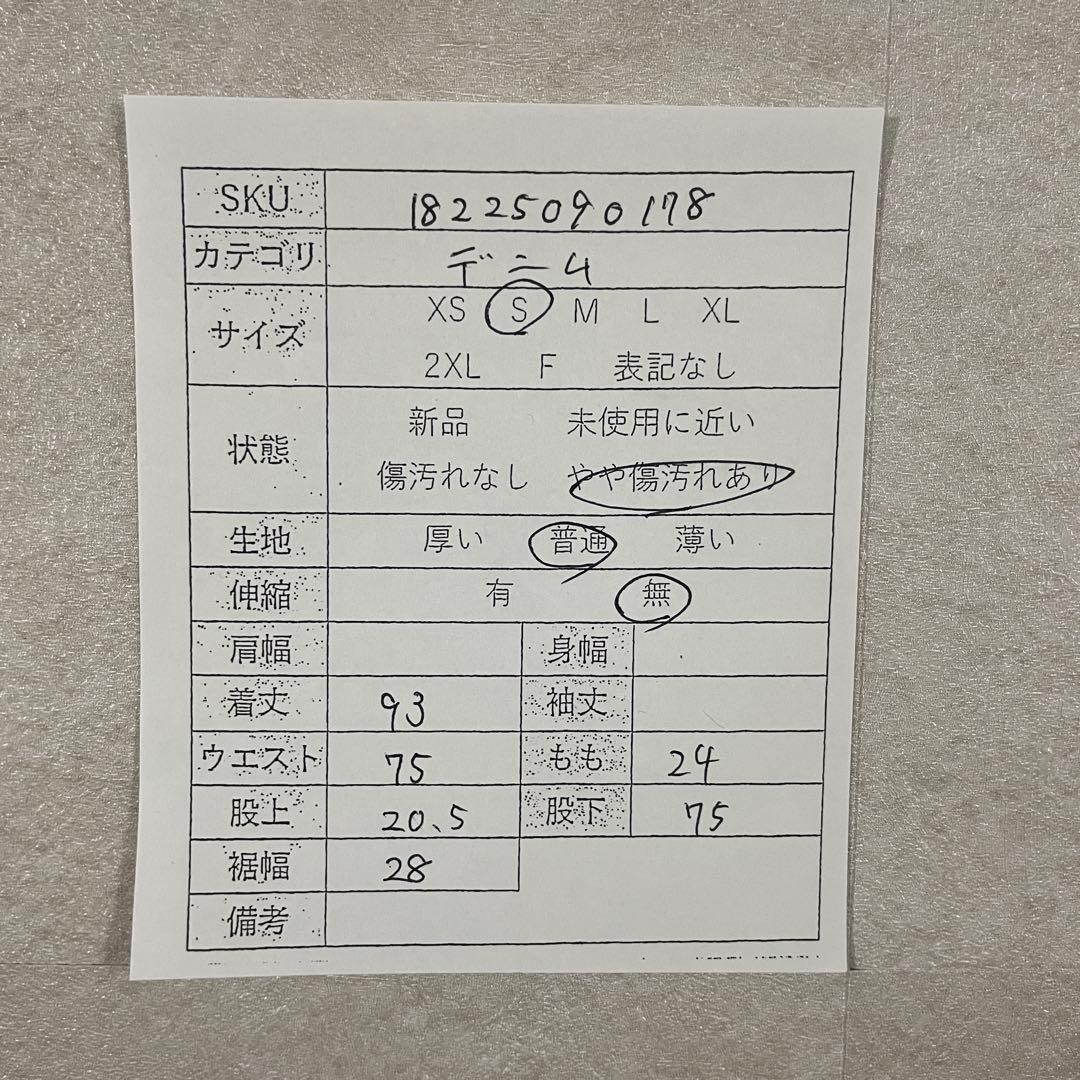 SKU 18225090178
カテゴリ デニム
サイズ XS S M L XL
2XL F 表記なし
状態 新品 未使用に近い
傷汚れなし やや傷汚れあり
生地 厚い 普通 薄い
伸縮 有 無
肩幅 身幅
着丈 93 袖丈
ウエスト 75 もも 24
股上 20、5 股下 75
裾幅 28
備考